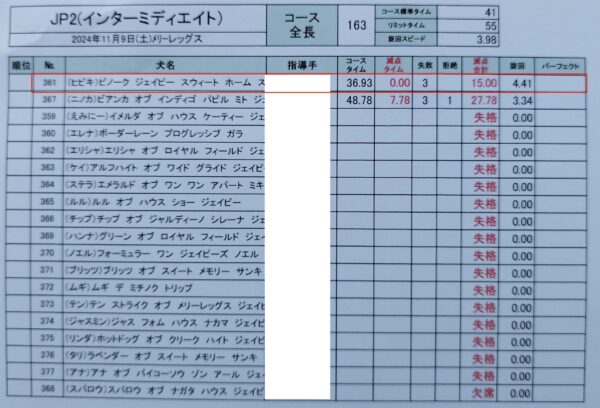 JP2(インターミディエイト)
2024年11月9日(土)メリーレッグス
コース全長 163
コース標準タイム 41
リミットタイム 55
旋回スピード 3.98
順位 No. 犬名 指導手 コースタイム 減点タイム 失敗 拒絶 減点合計 旋回 パーフェクト
361 (ヒビキ)ピノーク ジェイピー スウィート ホーム ス 36.93 0.00 3 15.00 4.41
367 (ニノカ)ビアンカ オブ インディゴ パピル ミト ジェ 48.78 7.78 3 1 27.78 3.34
359 (えみにー)イメルダ オブ ハウス ケーティー ジェ 失格 0.00
360 (エレナ)ボーダーレーン プログレッシブ ガラ 失格 0.00
362 (エリシャ)エリシャ オブ ロイヤル フィールド ジェ 失格 0.00
363 (ケイ)アルファハイト オブ ワイド グライド ジェイピ 失格 0.00
364 (ステラ)エメラルド オブ ワン ワン アパート ミキ 失格 0.00
365 (ルル)ルル オブ ハウス ショー ジェイピー 失格 0.00
366 (チップ)チップ オブ ジャルディーノ シレーナ ジェ 失格 0.00
369 (ハンナ)グリーン オブ ロイヤル フィールド ジェイ 失格 0.00
370 (ノエル)フォーミュラー ワン ジェイピーズ ノエル 失格 0.00
371 (ブリッツ)ブリッツ オブ スイート メモリー サンキ 失格 0.00
372 (ムギ)ムギ デ ミチノク トリップ 失格 0.00
373 (テン)テン ストライク オブ メリーレッグス ジェイ 失格 0.00
374 (ジャスミン)ジャス フォム ハウス ナカマ ジェイピ 失格 0.00
375 (リンダ)ホットドッグ オブ クリーク ハイト ジェイ 失格 0.00
376 (タリ)ラベンダー オブ スイート メモリー サンキ 失格 0.00
377 (アナ)アナ オブ バイコーソウ ゾン アール ジェイ 失格 0.00
368 (スパロウ)スパロウ オブ ナガタ ハウス ジェイピ 欠席 0.00